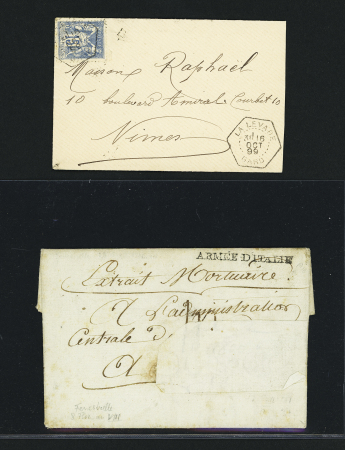 Maison Raphaël
10 boulevard Amiral Courbet 10
Nimes
LA LEVADE
16
OCT
99
GARD
ARMÉE D'ITALIE
Extrait Mortuaire
A L'administration
Centrale d.
A